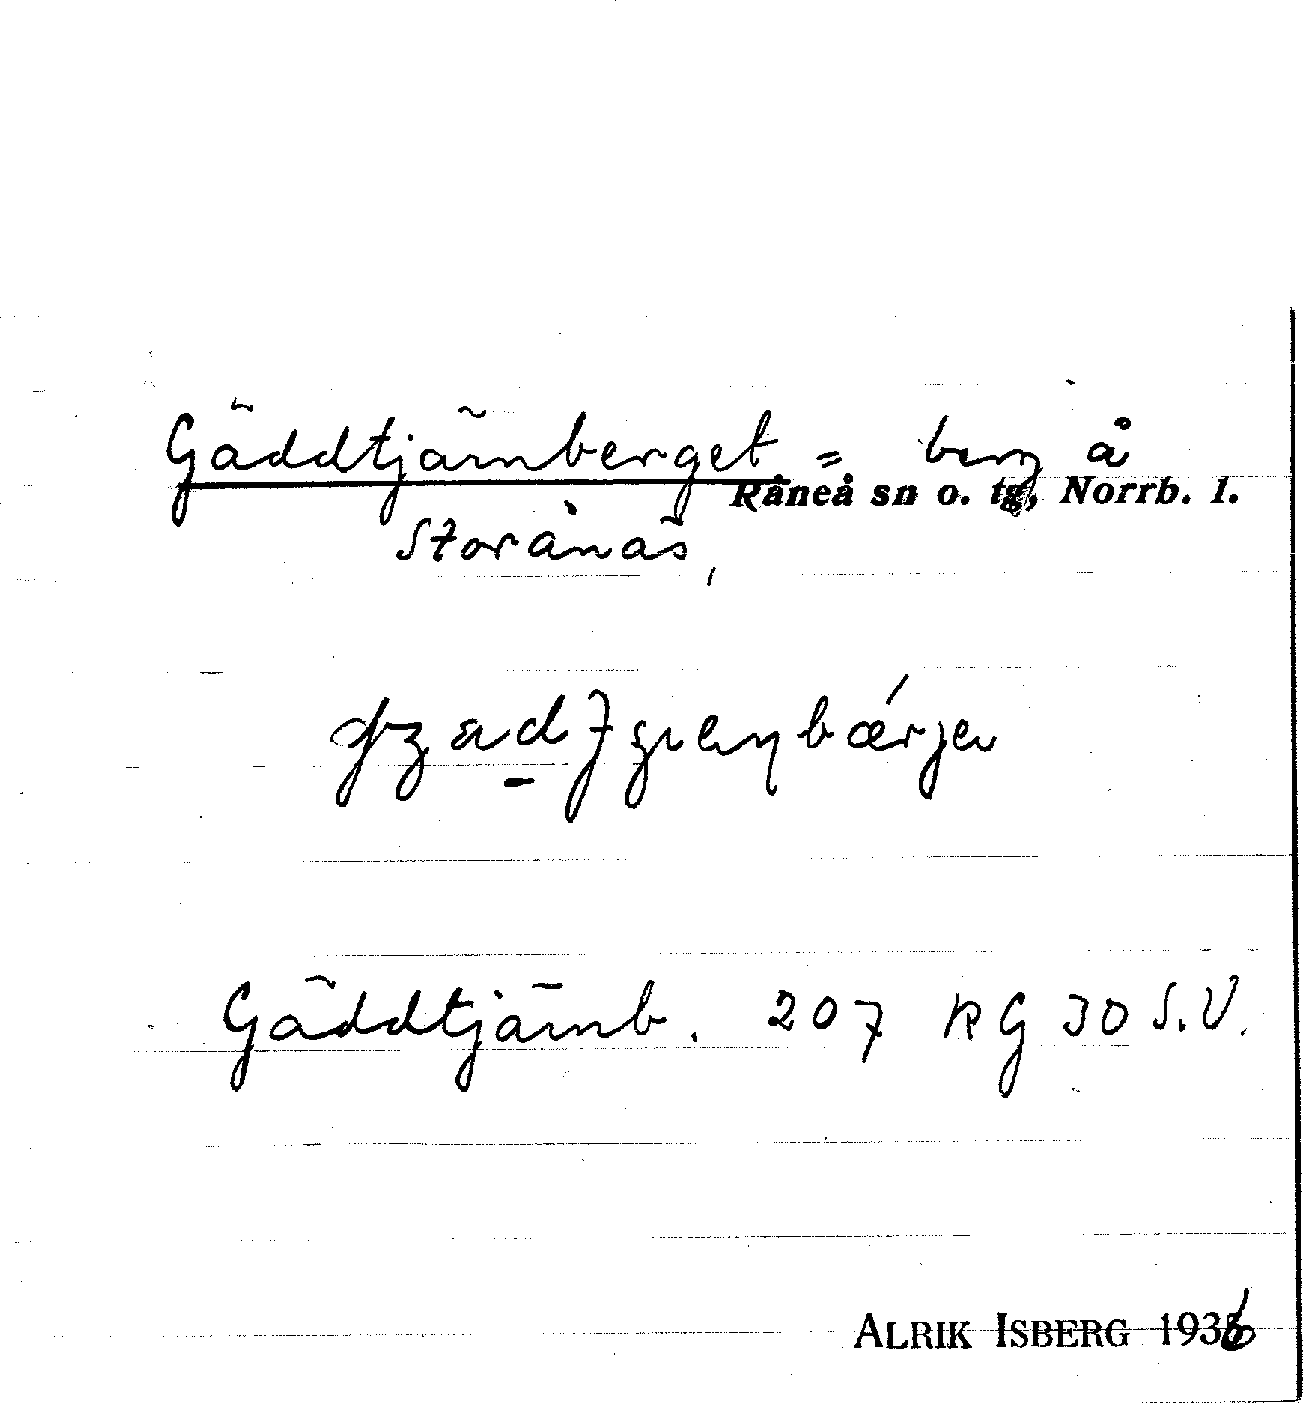 Gäddtjärnberget = berg å
Råneå sn o. tg, Norrb. l.
Storånäs,
Gäddtjärnb. 207 RG 30 S.V.
ALRIK ISBERG 1936